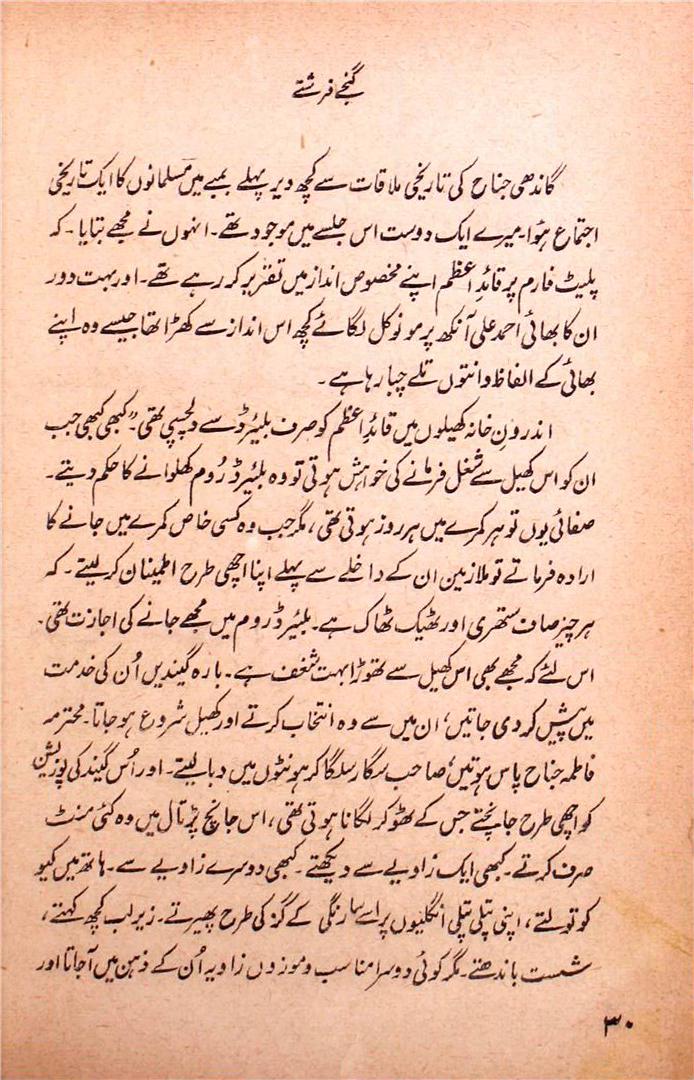 گنجے فرشتے
گاندھی جناح کی تاریخی ملاقات سے کچھ دیر پہلے بمبے میں مسلمانوں کا ایک تاریخی
اجتماع ہؤا۔ میرے ایک دوست اس جلسے میں موجود تھے۔ انہوں نے مجھے بتایا۔ کہ
پلیٹ فارم پر قائدِ اعظم اپنے مخصوص انداز میں تقریر کر رہے تھے۔ اور بہت دور
ان کا بھائی احمد علی آنکھ پر مونوکل لگائے کچھ اس انداز سے کھڑا تھا جیسے وہ اپنے
بھائی کے الفاظ دانتوں تلے چبا رہا ہے۔
اندرونِ خانہ کھیلوں میں قائدِ اعظم کو صرف بلیئرڈ سے دلچسپی تھی۔ "کبھی کبھی جب
ان کو اس کھیل سے شغل فرمانے کی خواہش ہوتی تو وہ بلیئرڈ رُوم کھلوانے کا حکم دیتے۔
صفائی یوں تو ہر کمرے میں ہر روز ہوتی تھی، مگر جب وہ کسی خاص کمرے میں جانے کا
ارادہ فرماتے تو ملازمین ان کے داخلے سے پہلے اپنا اچھی طرح اطمینان کر لیتے۔ کہ
ہر چیز صاف ستھری اور ٹھیک ٹھاک ہے۔ بلیئرڈ روم میں مجھے جانے کی اجازت تھی۔
اس لئے کہ مجھے بھی اس کھیل سے تھوڑا بہت شغف ہے۔ بارہ گیندیں اُن کی خدمت
میں پیش کر دی جاتیں، ان میں سے وہ انتخاب کرتے اور کھیل شروع ہو جاتا۔ محترمہ
فاطمہ جناح پاس ہوتیں، صاحب سگار سلگا کر ہونٹوں میں دبا لیتے۔ اور اُس گیند کی پوزیشن
کو اچھی طرح جانچتے جس کے ٹھوکر لگانا ہوتی تھی، اس جانچ پڑتال میں وہ کئی منٹ
صرف کرتے۔ کبھی ایک زاویے سے دیکھتے۔ کبھی دوسرے زاویے سے۔ ہاتھ میں کیو
کو تولتے، اپنی پتلی پتلی انگلیوں پر اسے سارنگی کے گز کی طرح پھیرتے۔ زیرِلب کچھ کہتے،
شست باندھتے۔ مگر کوئی دوسرا مناسب و موزوں زاویہ اُن کے ذہن میں آجاتا اور
۳۰